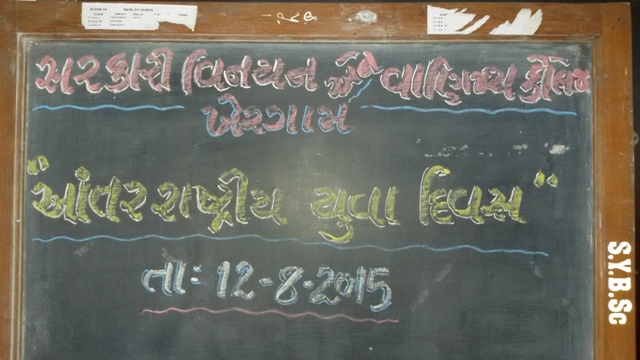 સરકારી વિનયન અને વાણિજ્ય કૉલેજ
ખેરગામ
"આંતરરાષ્ટ્રીય યુવા દિવસ"
તાઃ 12-8-2015
S.Y.B.Sc